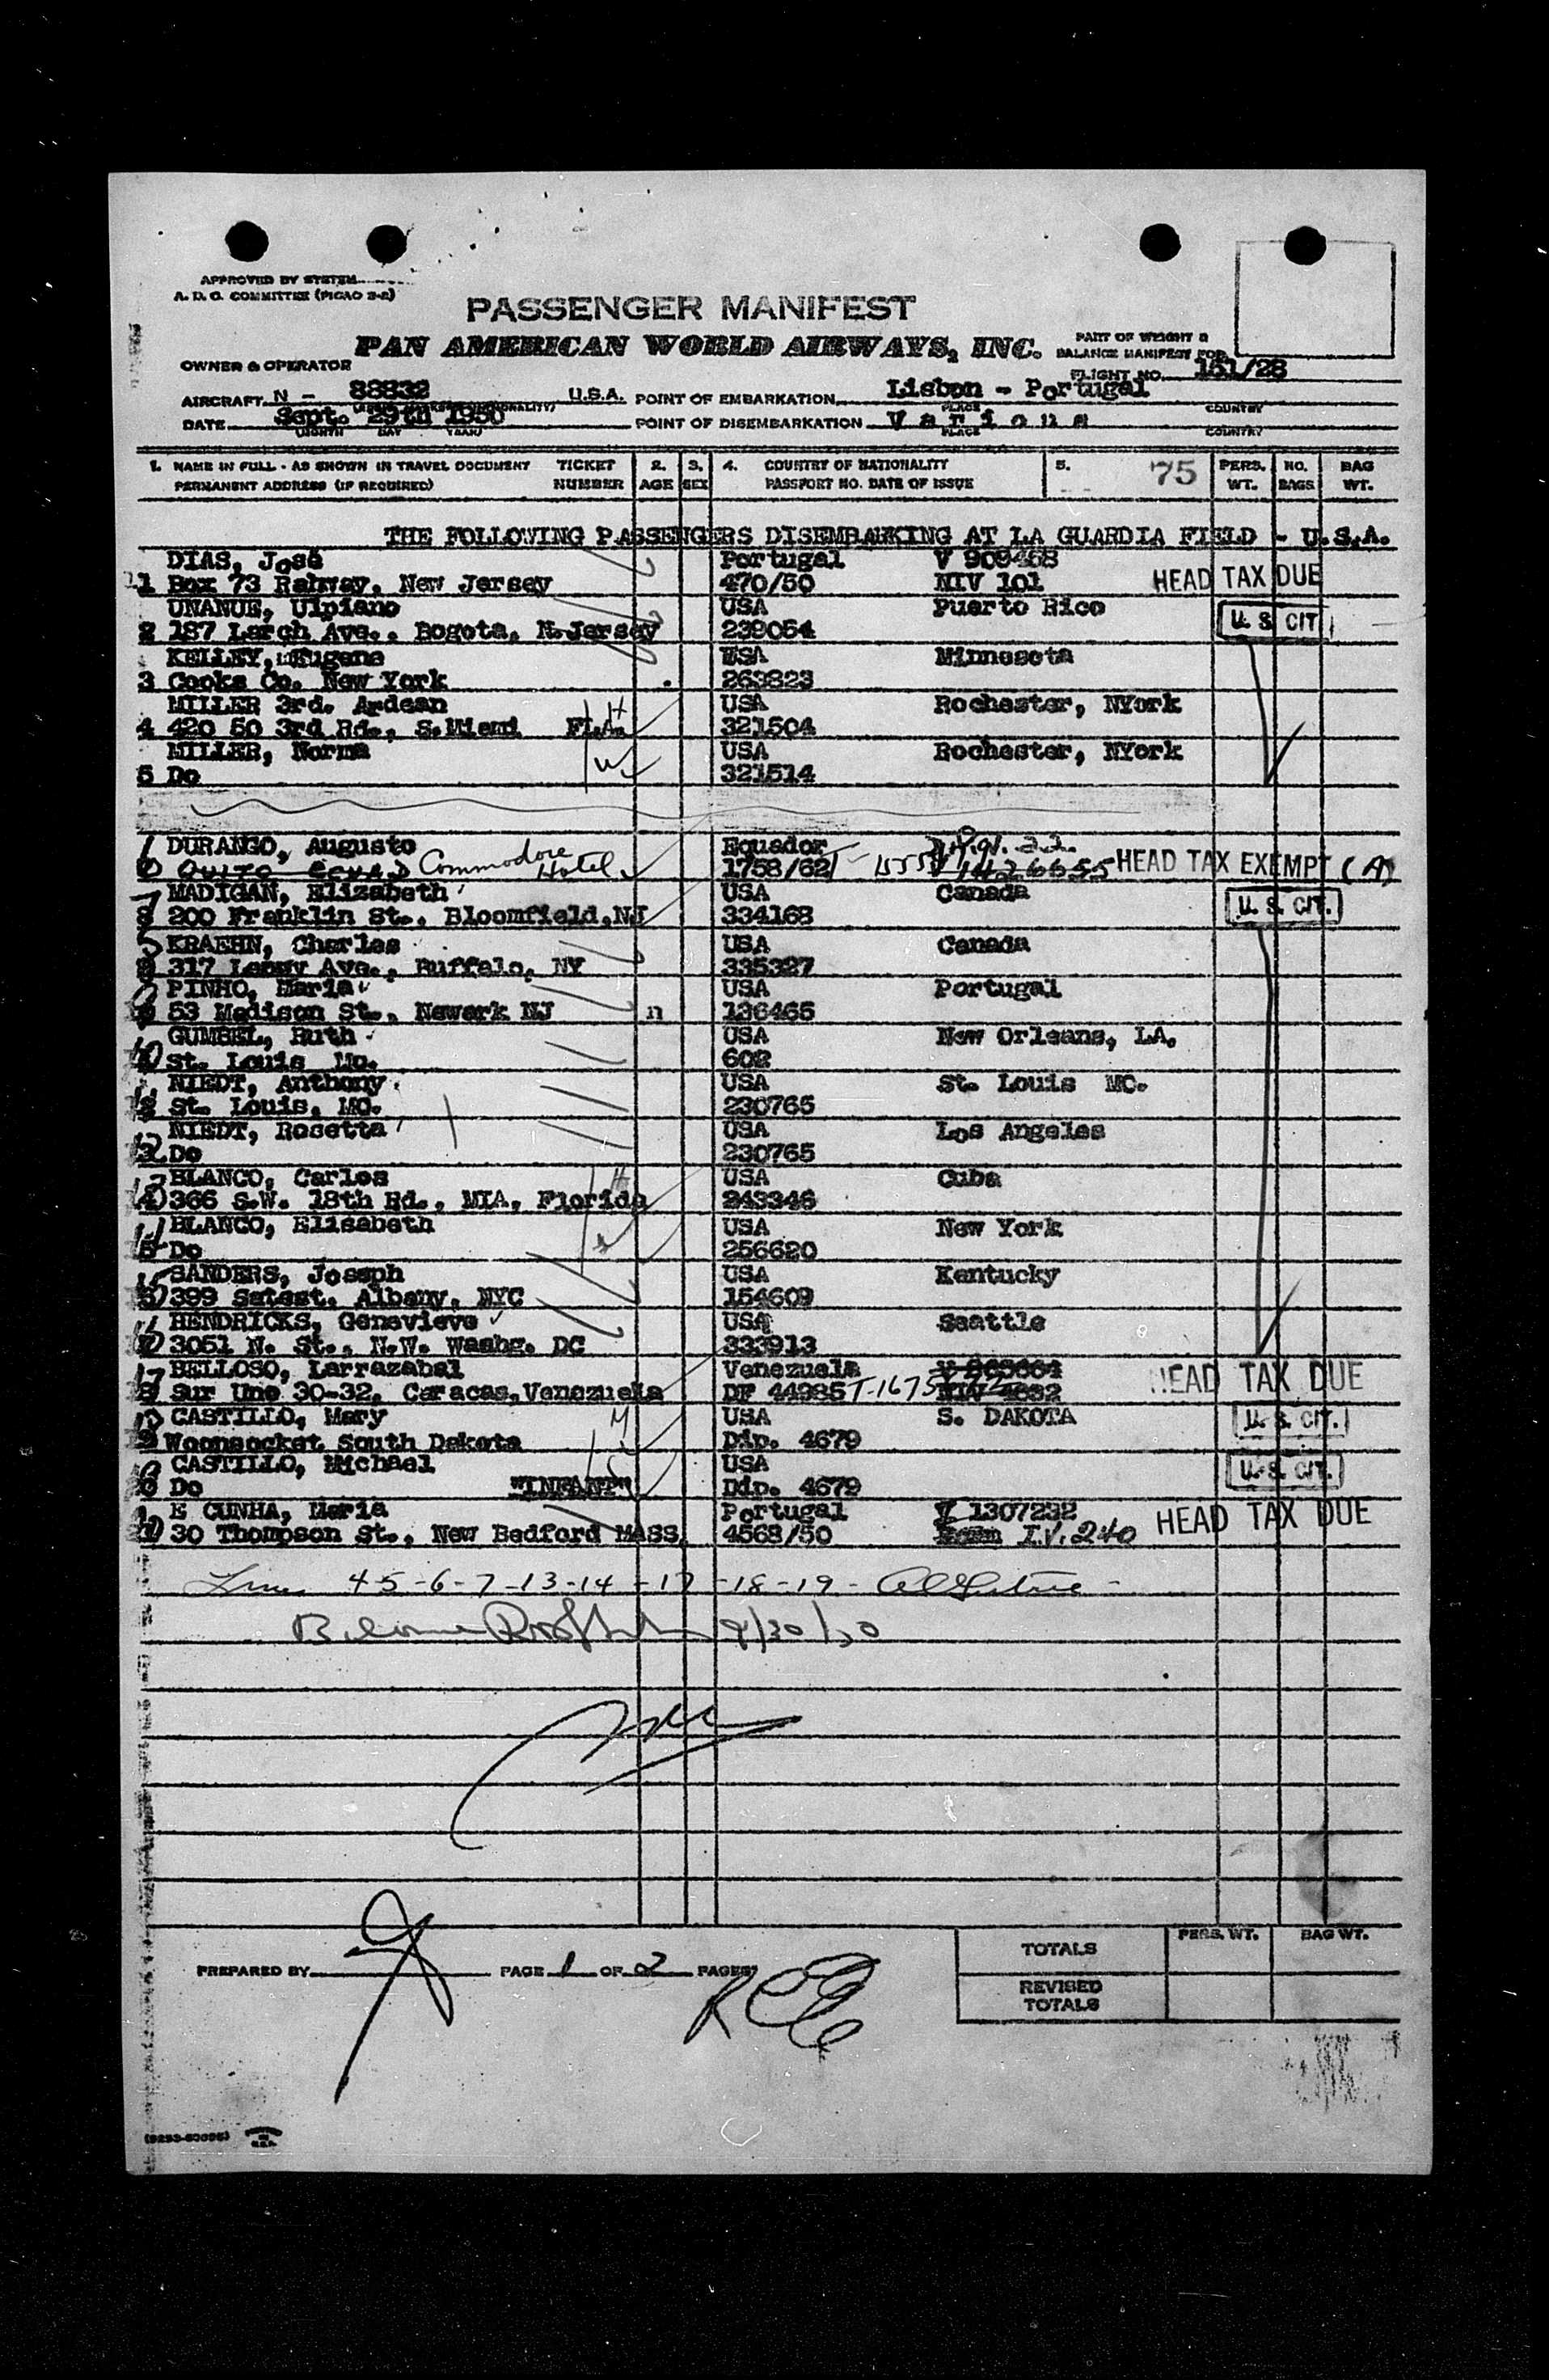 APPROVED BY SYSTEM
A. D. O. COMMITTEE (PICAO 2-2)
PASSENGER MANIFEST
PAN AMERICAN WORLD AIRWAYS, INC.
PART OF WEIGHT &
BALANCE MANIFEST FOR
OWNER & OPERATOR
FLIGHT NO. 151/28
AIRCRAFT N - 88832 U.S.A. POINT OF EMBARKATION Lisbon - Portugal
PLACE COUNTRY
DATE Sept. 29th 1950 POINT OF DISEMBARKATION Various
MONTH DAY YEAR PLACE COUNTRY
1. NAME IN FULL - AS SHOWN IN TRAVEL DOCUMENT TICKET 2. 3. 4. COUNTRY OF NATIONALITY 5. 75 PERS. NO. BAG
PERMANENT ADDRESS (IF REQUIRED) NUMBER AGE SEX PASSPORT NO. DATE OF ISSUE WT. BAGS WT.
THE FOLLOWING PASSENGERS DISEMBARKING AT LA GUARDIA FIELD - U.S.A.
DIAS, José Portugal V 909468
1 Box 73 Rahway, New Jersey 470/50 NIV 101 HEAD TAX DUE
UNANUE, Ulpiano USA Puerto Rico
2 187 Larch Ave., Bogota, N.Jersey 239054 U. S. CIT.
KELLEY, Eugene USA Minnesota
3 Cooks Co. New York 263823
MILLER 3rd. Ardean H USA Rochester, NYork
4 420 50 3rd Rd., S.Miami FLA. 321504
MILLER, Norma W USA Rochester, NYork
5 Do 321514
DURANGO, Augusto Equador
Quito Commodore Hotel 1758/62 HEAD TAX EXEMPT (A)
7 MADIGAN, Elizabeth USA Canada
200 Franklin St., Bloomfield,NJ 334168 U. S. CIT.
KRAEHN, Charles USA Canada
317 Ave., Buffalo, NY 335327
PINHO, Maria USA Portugal
53 Madison St., Newark NJ n 136465
10 GUMBEL, Ruth USA New Orleans, LA.
St. Louis Mo. 602
NIEDT, Anthony USA St. Louis MO.
St. Louis, MO. 230765
12 NIEDT, Rosetta USA Los Angeles
Do 230765
BLANCO, Carlos H USA Cuba
366 S.W. 18th Rd., MIA, Florida 243346
14 BLANCO, Elisabeth USA New York
Do 256620
SANDERS, Joseph USA Kentucky
399 Satest. Albany, NYC 154609
HENDRICKS, Genevieve USA Seattle
3051 N. St., N.W. Washg. DC 333913
17 BELLOSO, Larrazabal Venezuela
Sur Uno 30-32, Caracas,Venezuela DF 44985 HEAD TAX DUE
CASTILLO, Mary M USA S. DAKOTA
Woonsocket South Dakota Dip. 4679 U. S. CIT.
CASTILLO, Michael S USA
Do "INFANT" Dip. 4679 U. S. CIT.
E CUNHA, Maria Portugal V 1307232
30 Thompson St., New Bedford MASS. 4568/50 I.V. 240 HEAD TAX DUE
4-5-6-7-13-14-17-18-19-
9/30/50
PREPARED BY PAGE 1 OF 2 PAGES
TOTALS PERS. WT. BAG WT.
REVISED
TOTALS